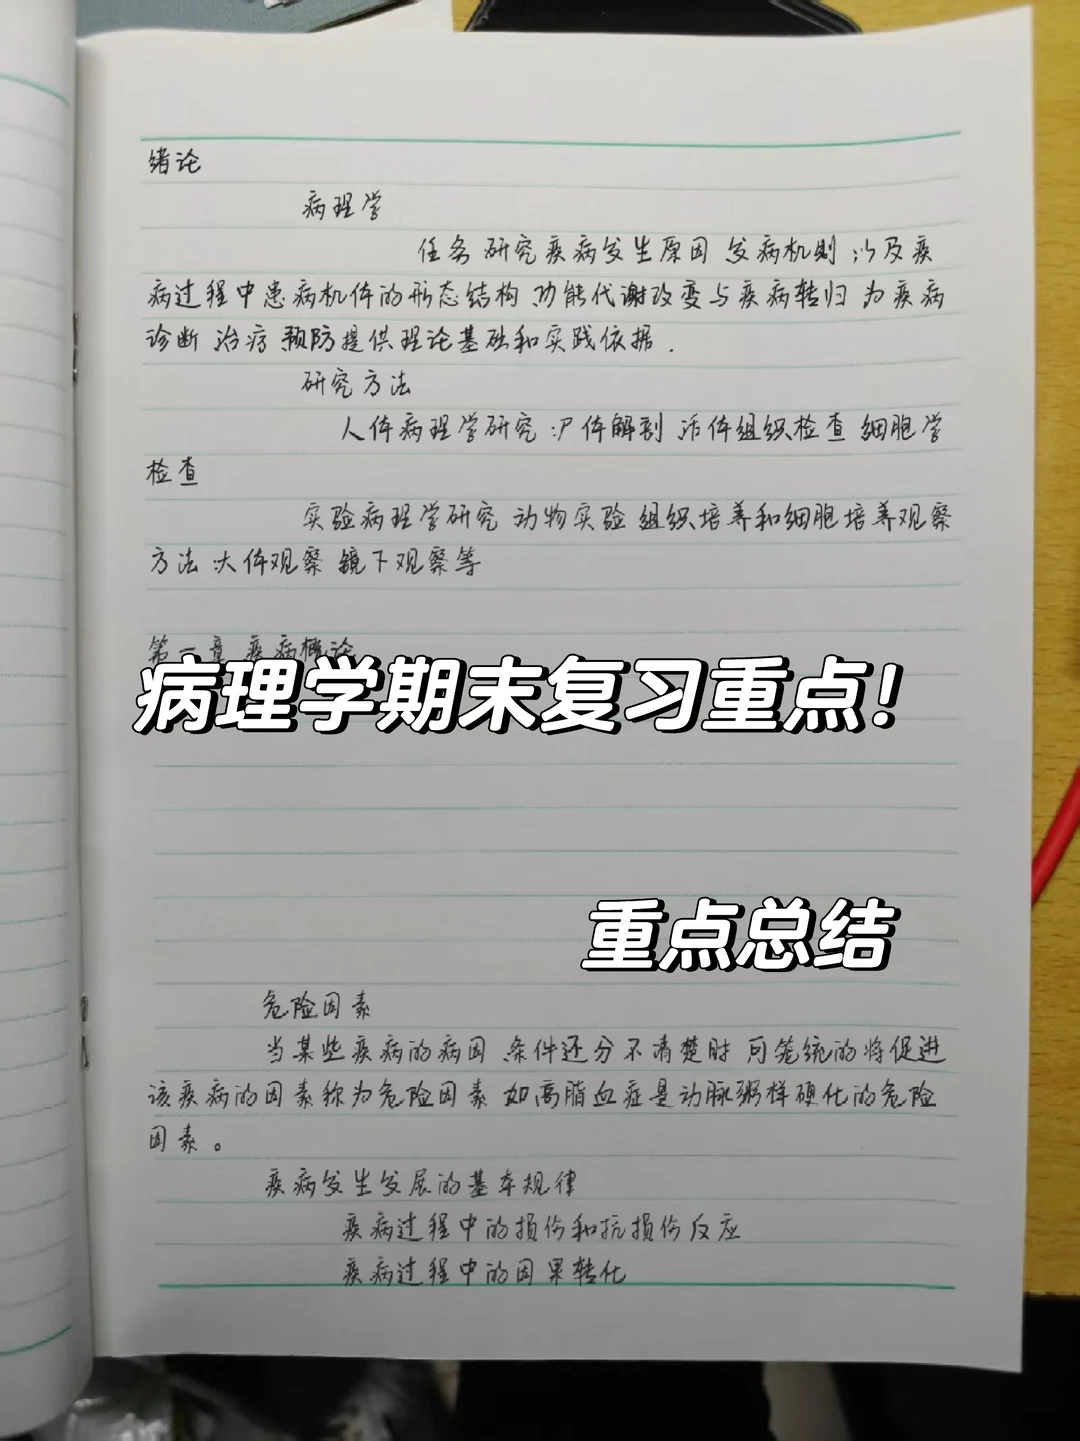 绪论
病理学
任务 研究疾病发生原因 发病机制 以及疾
病过程中患病机体的形态结构 功能代谢改变与疾病转归 为疾病
诊断 治疗 预防提供理论基础和实践依据.
研究方法
人体病理学研究:尸体解剖 活体组织检查 细胞学
检查
实验病理学研究 动物实验 组织培养和细胞培养观察
方法:大体观察 镜下观察等
第一章 疾病概论
病理学期末复习重点!
重点总结
危险因素
当某些疾病的病因 条件还分不清楚时 可笼统的将促进
该疾病的因素称为危险因素 如高脂血症是动脉粥样硬化的危险
因素。
疾病发生发展的基本规律
疾病过程中的损伤和抗损伤反应
疾病过程中的因果转化